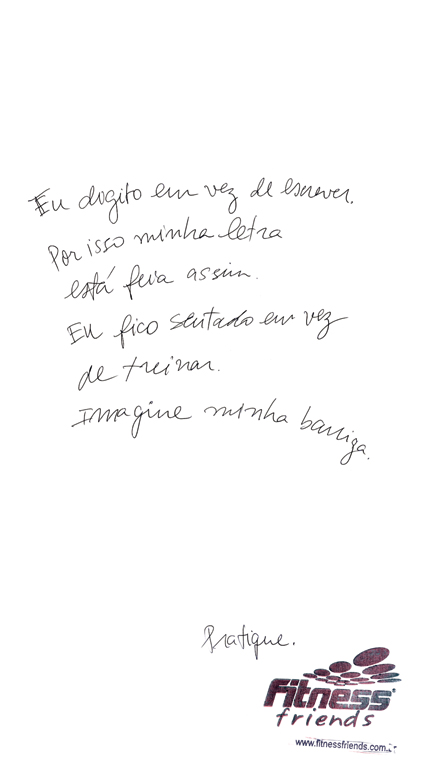 Eu dogito em vez de escrever.
Por isso minha letra
está feia assim.
Eu fico sentado em vez
de treinar.
Imagine minha barriga.
Pratique.
Fitness
friends
www.fitnessfriends.com.br